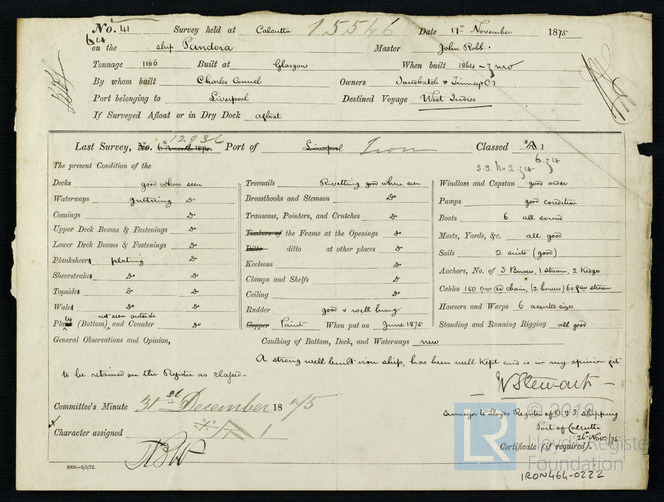 No. 41 Survey held at Calcutta 15546 Date 17th November 1875
on the ship Pandora Master John Robb
Tonnage 1166 Built at Glasgow When built 1864
By whom built Charles Connell Owners
Port belonging to Liverpool Destined Voyage West Indies
If Surveyed Afloat or in Dry Dock afloat
12936
Last Survey, No. Port of Liverpool Iron Classed
The present Condition of the
Decks good when seen
Waterways guttering do
Comings do
Upper Deck Beams & Fastenings do
Lower Deck Beams & Fastenings do
Planksheers plating do
Sheerstrakes do do
Topsides do do
Wales do do
not seen outside
(Bottom) and Counter do
Treenails Rivetting good where seen
Breasthooks and Stemson do
Transoms, Pointers, and Crutches do
Timbers of the Frame at the Openings do
Ditto ditto at other places do
Keelsons do
Clamps and Shelfs do
Ceiling do
Rudder good & well hung
Copper Paint When put on June 1875
Caulking of Bottom, Deck, and Waterways new
Windlass and Capstan good order
Pumps good condition
Boats 6 all sound
Masts, Yards, &c. all good
Sails 2 suits (good)
Anchors, No. of 3 Bowers, 1 stream, 2 Kedges
Cables chain, (2 bowers) 60 stream
Hawsers and Warps 6 assorted sizes
Standing and Running Rigging all good
General Observations and Opinion,
A strong well built iron ship, has been well kept and is in my opinion fit
to be retained on the Register as classed
W Stewart
Surveyor to Lloyds Register of B & F Shipping
Port of Calcutta
26 Nov 75
Certificate (if required).
Committee's Minute 31st December 1875
Character assigned
3000—6/3/72.
© 2019
LR
Lloyd's Register
Foundation
IRON464-0222